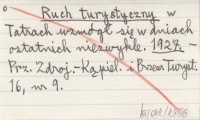 Ruch turystyczny w
Tatrach wzmógł się w dniach
ostatnich niezwykle. 1927. -
Prz. Zdroj.-Kąpiel. i Przew. Turyst.
16, nr 9.